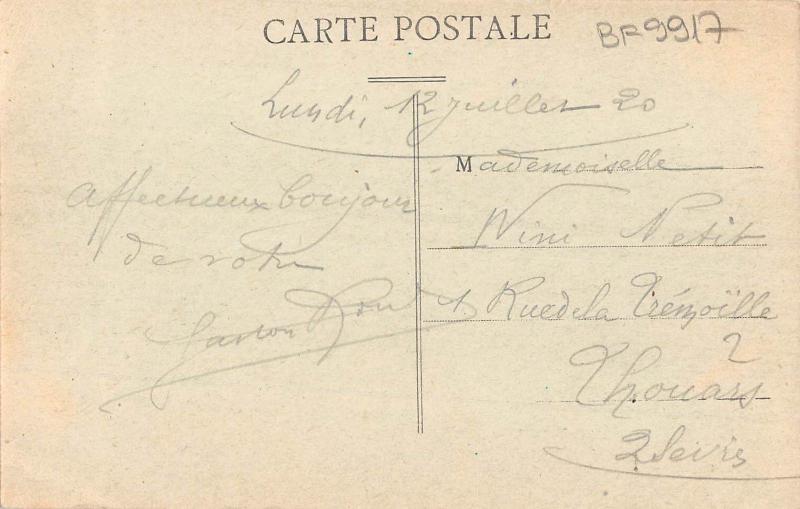 CARTE POSTALE
BF9917
Lundi, 12 Juillet 20
Mademoiselle
Affectueux bonjour
de votre
Gaston
Nini Petit
1 Rue de la Trémoïlle
Thouars
2 Sevres